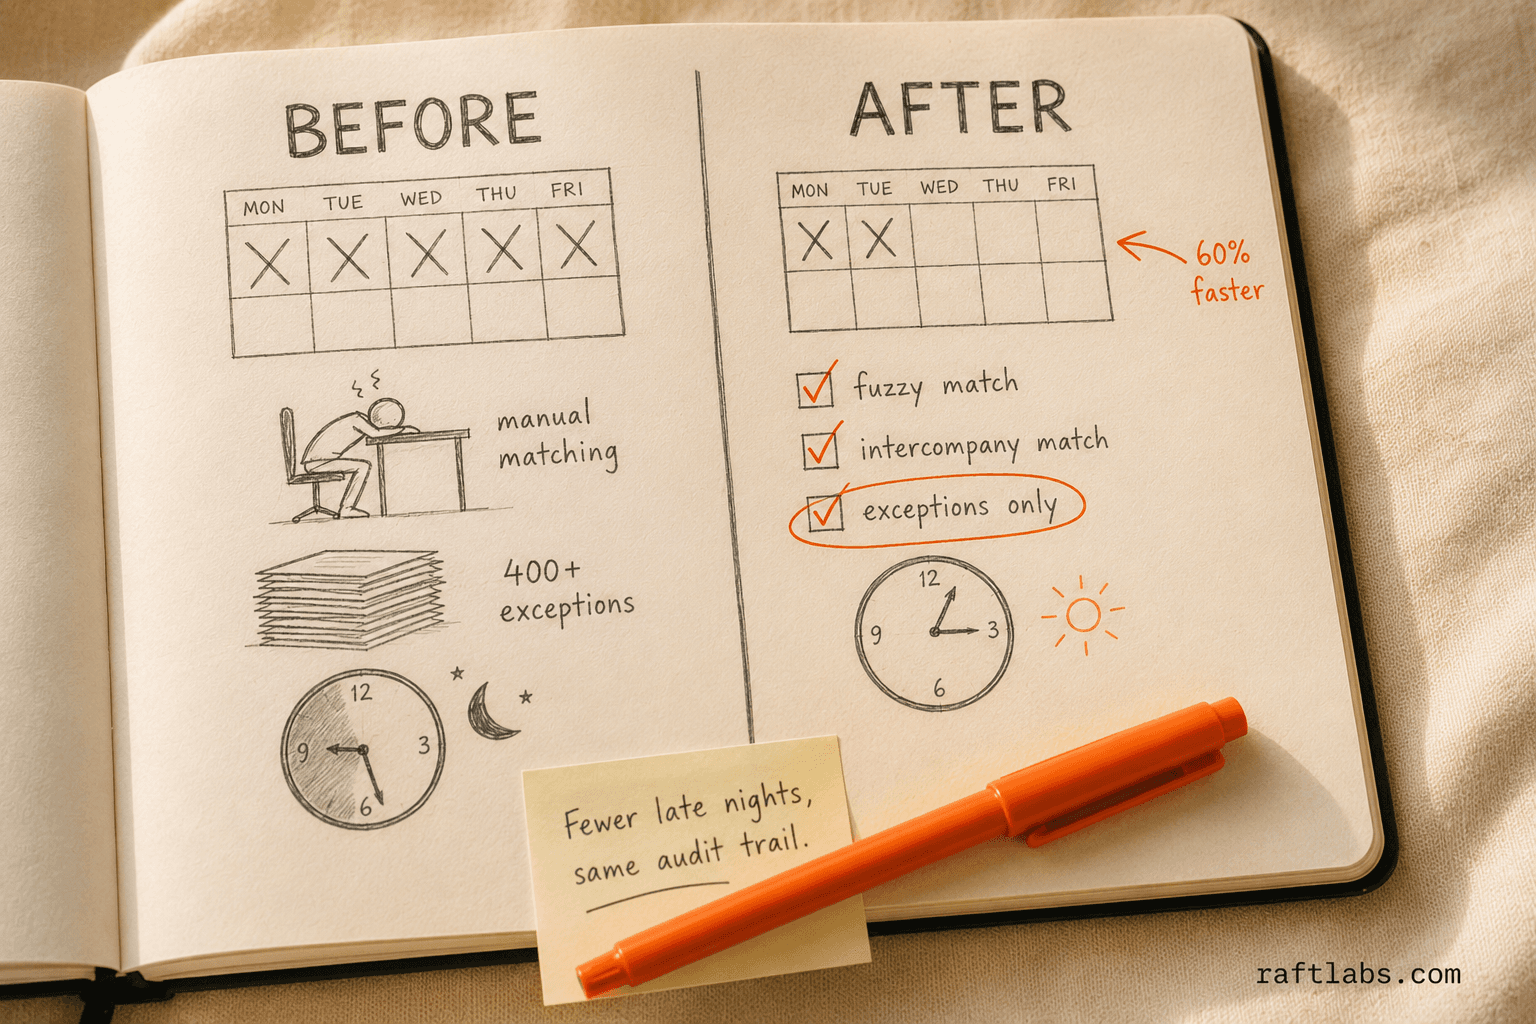 BEFORE
MON TUE WED THU FRI
X X X X X
manual
matching
400+
exceptions
12
9 3
6
AFTER
MON TUE WED THU FRI
X X
60%
faster
fuzzy match
intercompany match
exceptions only
12
9 3
6
Fewer late nights,
same audit trail.
raftlabs.com